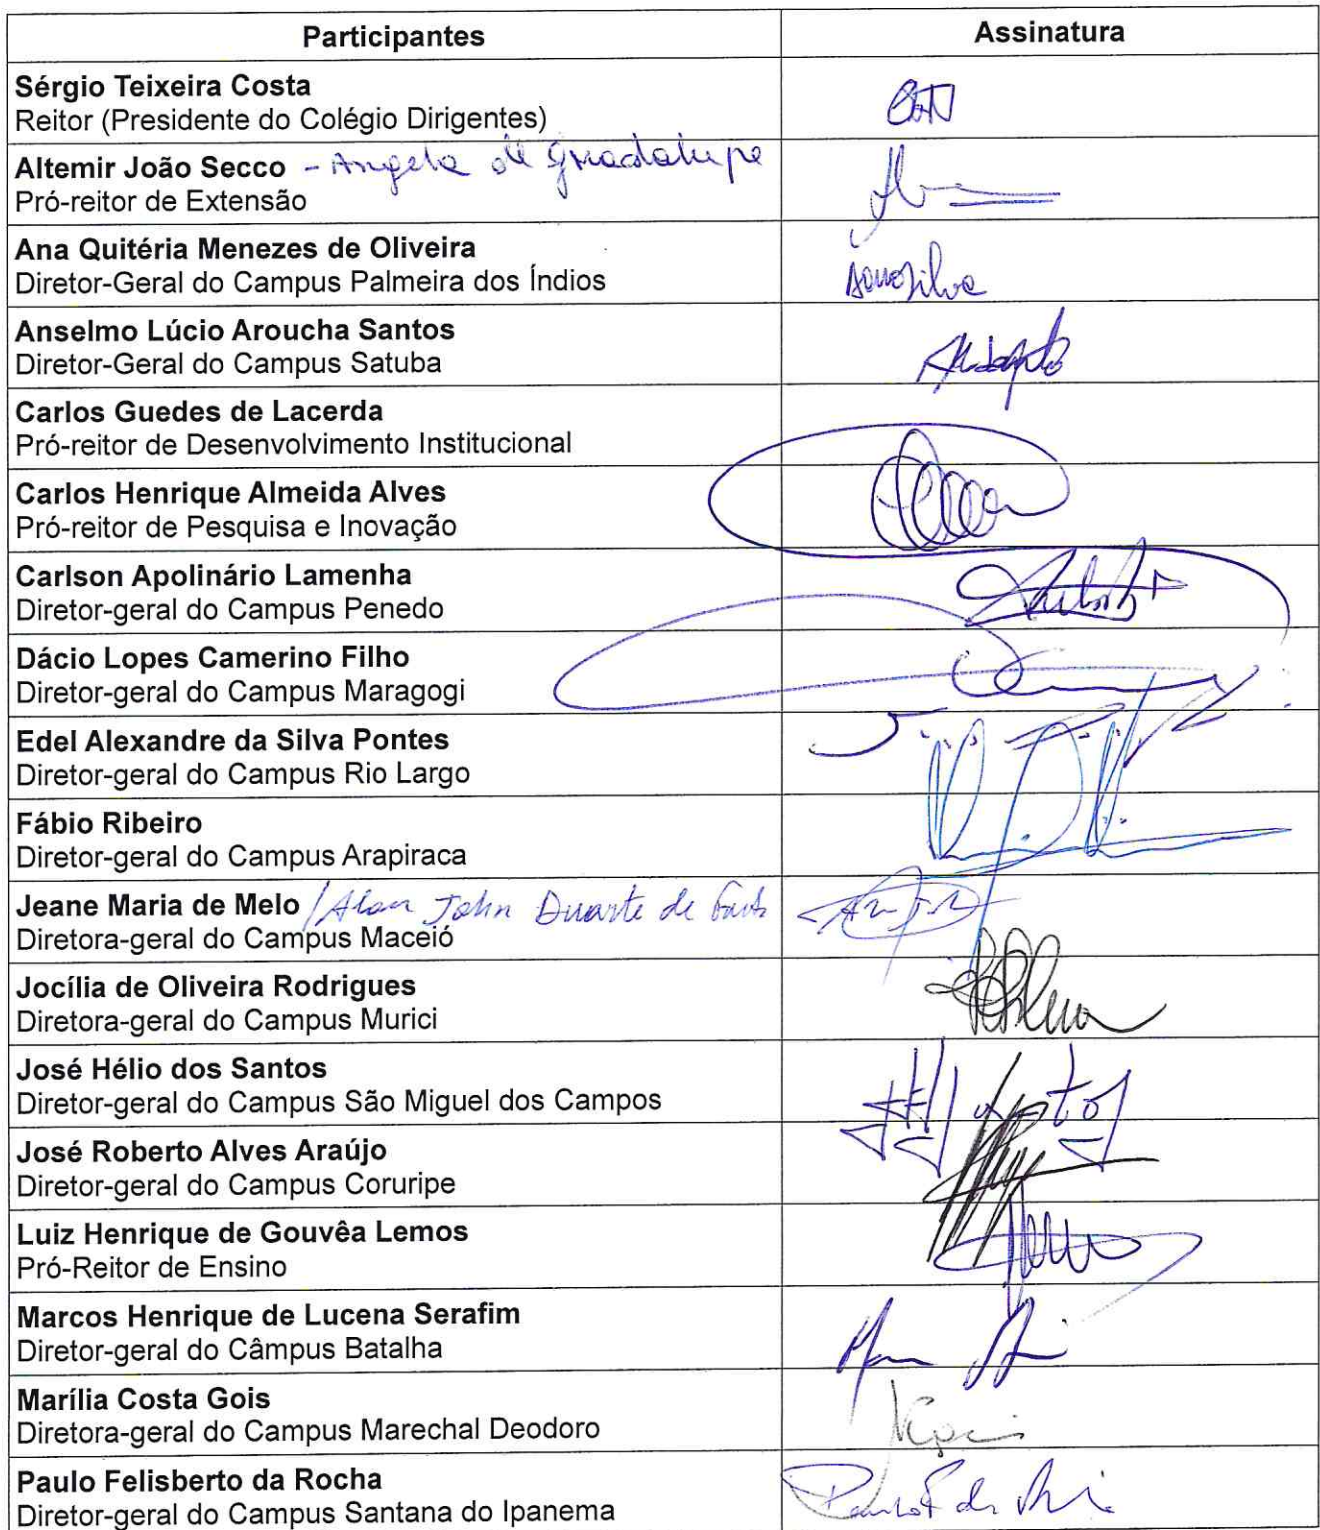 Participantes Assinatura
Sérgio Teixeira Costa
Reitor (Presidente do Colégio Dirigentes)
Altemir João Secco - Angela de Guadalupe
Pró-reitor de Extensão
Ana Quitéria Menezes de Oliveira
Diretor-Geral do Campus Palmeira dos Índios
Anselmo Lúcio Aroucha Santos
Diretor-Geral do Campus Satuba
Carlos Guedes de Lacerda
Pró-reitor de Desenvolvimento Institucional
Carlos Henrique Almeida Alves
Pró-reitor de Pesquisa e Inovação
Carlson Apolinário Lamenha
Diretor-geral do Campus Penedo
Dácio Lopes Camerino Filho
Diretor-geral do Campus Maragogi
Edel Alexandre da Silva Pontes
Diretor-geral do Campus Rio Largo
Fábio Ribeiro
Diretor-geral do Campus Arapiraca
Jeane Maria de Melo /Alan John Duarte de
Diretora-geral do Campus Maceió
Jocília de Oliveira Rodrigues
Diretora-geral do Campus Murici
José Hélio dos Santos
Diretor-geral do Campus São Miguel dos Campos
José Roberto Alves Araújo
Diretor-geral do Campus Coruripe
Luiz Henrique de Gouvêa Lemos
Pró-Reitor de Ensino
Marcos Henrique de Lucena Serafim
Diretor-geral do Câmpus Batalha
Marília Costa Gois
Diretora-geral do Campus Marechal Deodoro
Paulo Felisberto da Rocha
Diretor-geral do Campus Santana do Ipanema